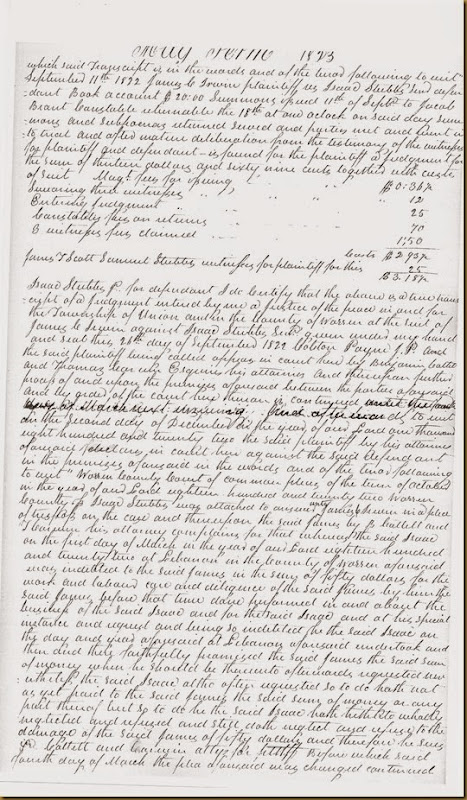 May Term 1823
which said Transcript is in the words and of the tenor following to wit
September 11th 1822 James L plaintiff vs Isaac Stubbs Senr defen-
dant Book account $20.00 Summons issued 11th of Septr to Jacob
Brant Constable returnable the 18th at one oclock on said day sum-
mons and Subpoenas returned Served and parties met and went in
to trial and after mature deliberation from the testimony of the witnesses
for plaintiff and defendant is found for the plaintiff a judgment for
the sum of thirteen dollars and sixty nine cents together with costs
of suit Mags fees for opening $0.36¾
Swearing three witnesses 12
Entering judgment 25
Constables fees on returns 70
3 witnesses fees claimed 1.50
Costs $2.93¾
James T Scott Samuel Stubbs witnesses for plaintiff for this 25
$3.18¾
Isaac Stubbs Jr for defendant I do Certify that the above is a true trans-
cript of a judgment entered by me a justice of the peace in and for
the Township of Union and in the County of Warren at the suit of
James L against Isaac Stubbs Senr given under my hand
and seal this 28th day of September 1822 Payne J.P. And
the said plaintiff being called appears in court here by Benjamin Collett
and Thomas Corwin Esquires his attornies and thereupon further
process of and upon the premises aforesaid between the parties aforesaid
and by order of the court here thereon is continued until the
of March next ensuing. And afterwards to wit
on the second day of December in the year of our Lord one thousand
eight hundred and twenty two the said plaintiff by his attornies
aforesaid in court here against the said defendant
in the premises aforesaid in the words and of the tenor following
to wit Warren County Court of common pleas of the term of October
in the year of our Lord eighteen hundred and twenty two Warren
County ss Isaac Stubbs was attached to answer unto James L in a plea
of trespass on the case and thereupon the said James by B Collett and
T Corwin his attorney complains for that whereas the said Isaac
on the first day of March in the year of our Lord eighteen hundred
and twenty two at Lebanon in the County of Warren aforesaid
was indebted to the said James in the sum of fifty dollars for the
work and labour care and diligence of the said James by him the
said James before that time done performed in and about the
business of the said Isaac and for the said Isaac and at his special
instance and request and being so indebted he the said Isaac on
the day and year aforesaid at Lebanon aforesaid undertook and
then and there faithfully promised the said James the said sum
of money when he should be thereunto afterwards requested
the said Isaac altho often requested so to do hath not
as yet paid to the said James the said sum of money or any
part thereof but so to do he the said Isaac hath hitherto wholly
neglected and refused and still doth neglect and refuse to the
damage of the said James of fifty dollars and therefore he sues
&c Collett and Corwin attys for Before which said
fourth day of March the plea aforesaid was changed continued